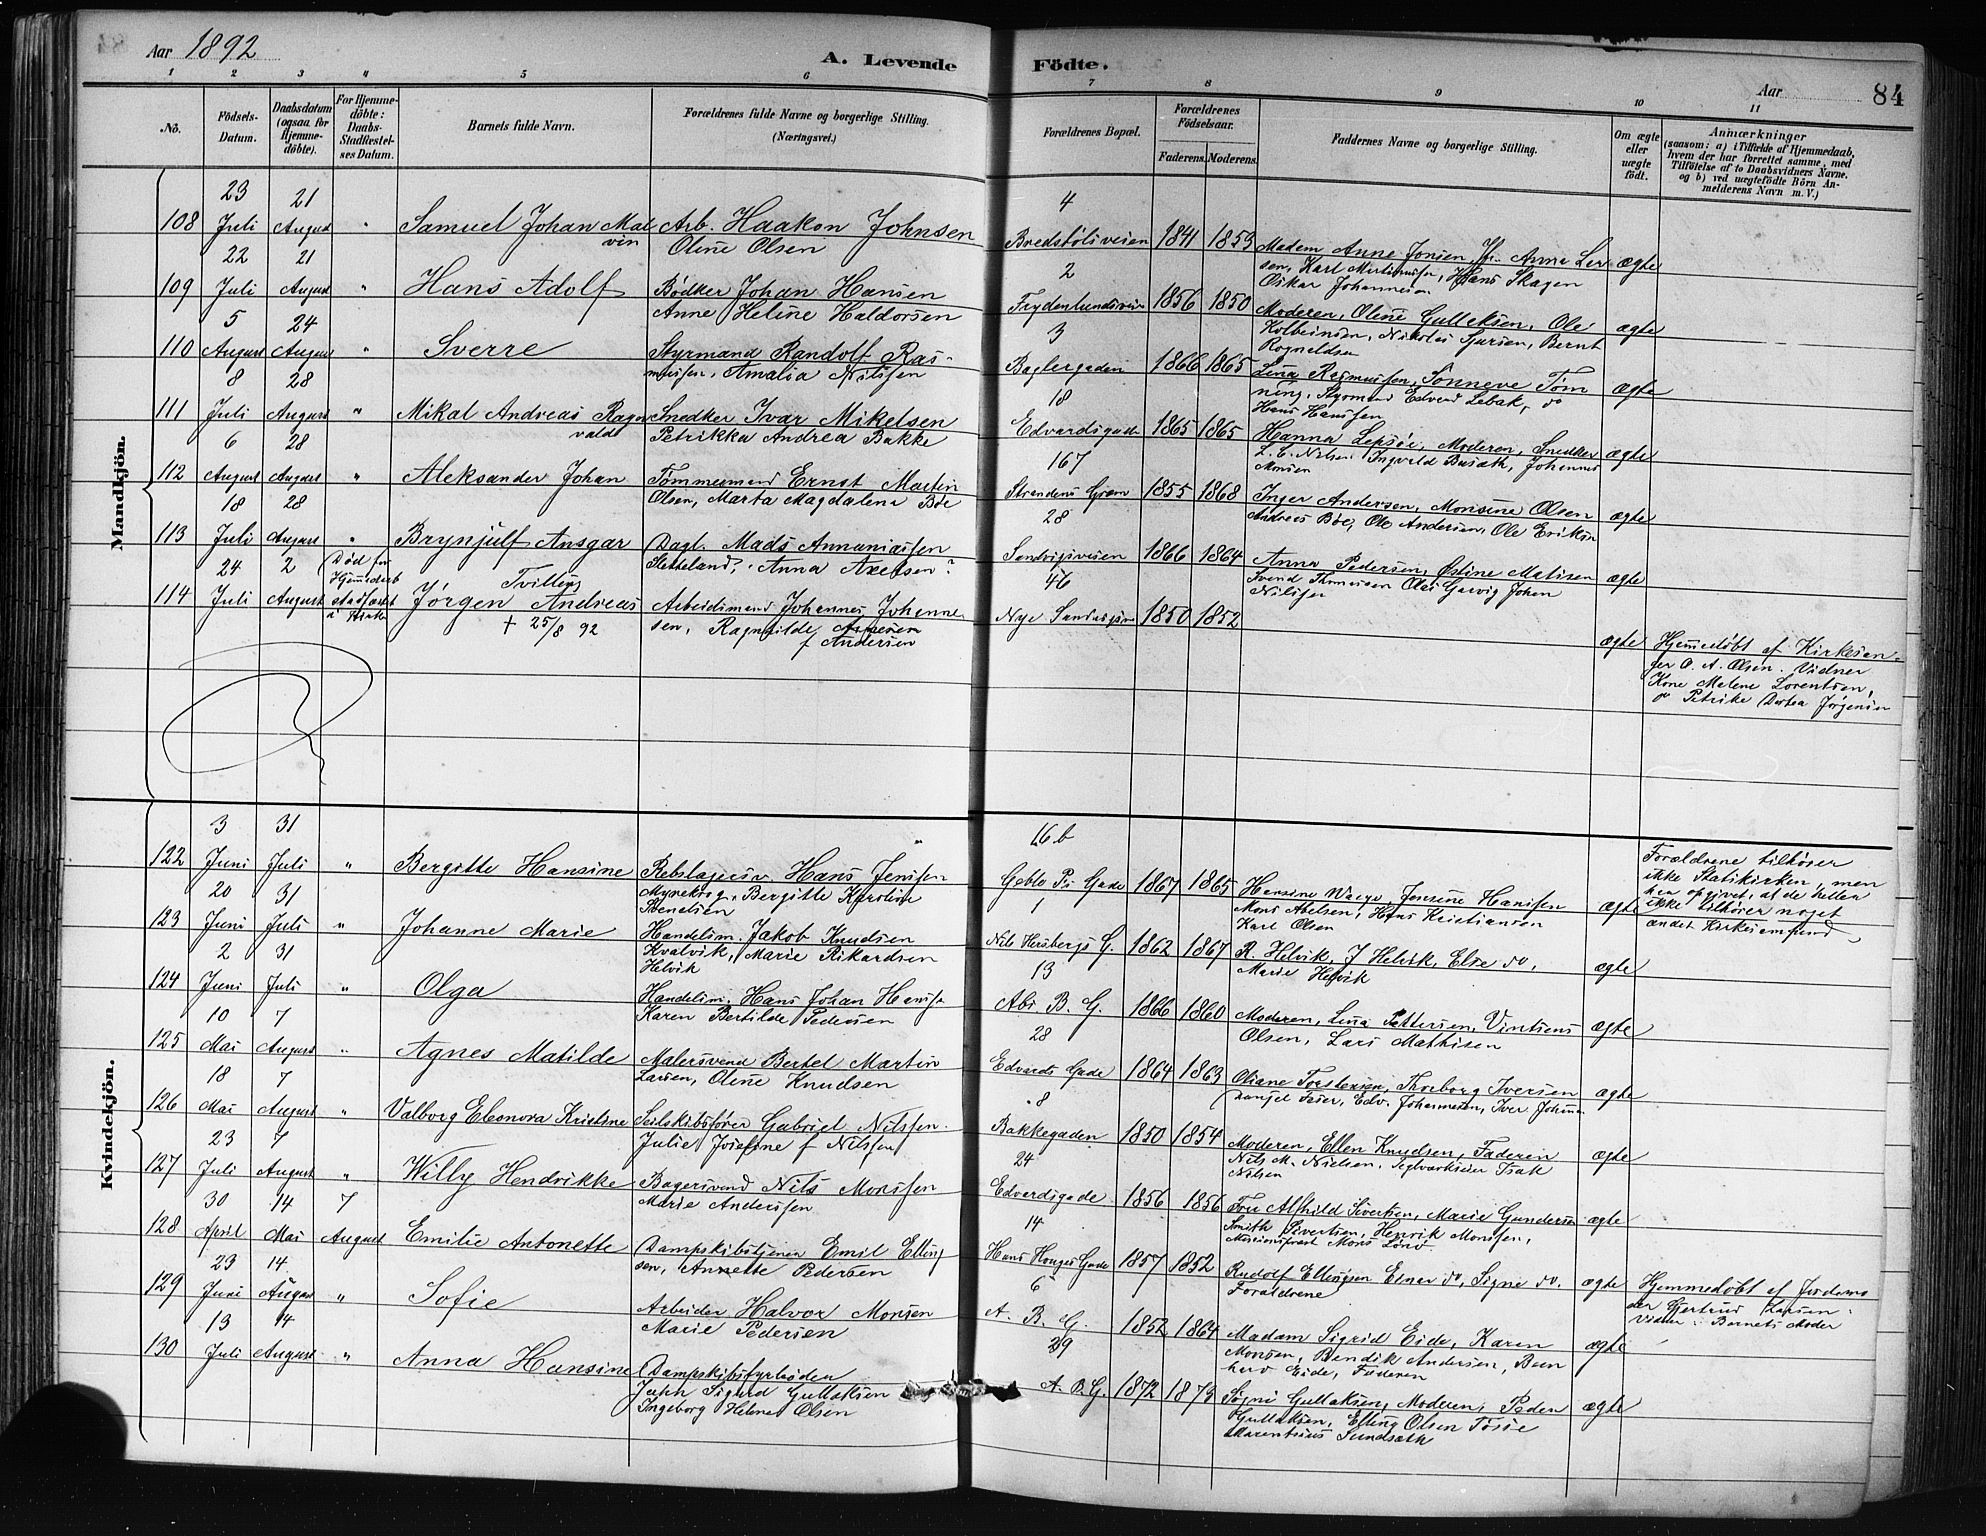 Aar 1892
A. Levende Födte.
Aar
84
1 2 3 4 5 6 7 8 9 10 11
No.
Födsels-Datum.
Daabsdatum (ogsaa for Hjemme-döbte).
For Hjemme-döbte: Daabs-Stadfæstel-ses Datum.
Barnets fulde Navn.
Forældrenes fulde Navne og borgerlige Stilling. (Næringsvei.)
Forældrenes Bopæl.
Forældrenes Födselsaar.
Faderens. Moderens.
Faddernes Navne og borgerlige Stilling.
Om ægte eller uægte födt.
Anmærkninger
(saasom: a) i Tilfælde af Hjemmedaab, hvem der har forrettet samme, med Tilföielse af to Daabsvidners Navne. og b) ved uægtefödte Börn Anmelderens Navn m. V.)
Mandkjön.
108 23 Juli 21 August " Samuel Johan Malvin
Arb. Haakon Johnsen
Oline Olsen
4 Bredstöliveien 1841 1853
Madem Anne Jonsen, Fr. Anna Lar
sen, Karl Martinusen, Hans Skagen
Oskar Johannesen
ægte
109 22 Juli 21 August " Hans Adolf
Bødker Johan Hansen
Anne Heline Haldorsen
2 Frydenlundsveien 1856 1850
Moderen, Oline Gullaksen, Ole
Kolbeinsen, Nikolai Sjursen, Bernt
Rognaldsen
ægte
110 5 August 24 August " Sverre
Styrmand Randolf Ras-
mussen, Amalia Nilssen
3 Baglergaden 1866 1865
Lina Rasmussen, Sönneve Töm
ning, Styrmand Edvard Lebak, do
Hans Hanssen
ægte
111 8 Juli 28 August " Mikal Andreas Ragnvald
Snedker Ivar Mikelsen
Petrikka Andrea Bakke
18 Edvardsgade 1865 1865
Hanna Lepsöe, Moderen, Snedker
L. E. Nilsen, Ingvald Busæth, Johannes
Monsen
ægte
112 6 August 28 August " Aleksander Johan
Tömmermand Ernst Martin
Olsen, Marta Magdalena Bøe
167 Strandens Grøn 1855 1868
Inger Andersen, Monsine Olsen
Andreas Bøe, Ole Andersen, Ole Eriksen
ægte
113 18 Juli 28 August " Brynjulf Ansgar
Dagl. Mads Annaniassen
Sletteland, Anna Axelsen
28 Sandvigsveien 1866 1864
Anna Pedersen, Østine Matisen
Svend Thomassen Olai Garvig Johan
Nilssen
ægte
114 24 Juli 2 August Død før Hjemmedaab stadfæstet i Kirken
Tvilling
Jørgen Andreas
+ 25/8 92
Arbeidsmand Johannes Johanne
sen, Ragnhilde
f Andersen
46 Nye Sandvigsvei 1850 1852
ægte
Hjemmedøbt af Kirkesan-
ger O. A. Olsen. Vidner
Kone Malene Lorentsen,
og Petrike Dortea Jørgensen
Kvindekjön.
122 3 Juni 31 Juli " Bergitte Hansine
Rebslagersv. Hans Jenssen
Myrekrog, Bergitte Karoline
Benelsen
16 b Geble Ps Gade 1867 1865
Hansine Waage, Jensine Hanssen
Mons Abelsen, Hans Kristiansen
Karl Olsen
ægte
Forældrene tilhører
ikke Statskirken, men
har opgivet, at de heller
ikke tilhører noget
andet Kirkesamfund
123 20 Juni 31 Juli " Johanne Marie
Handelsm. Jakob Knudsen
Kvalvik, Marie Rikardsen
Helvik
1 Nils Hersbergs G. 1862 1867
R. Helvik, J Helvik, Else do,
Marie Helvik
ægte
124 2 Juni 31 Juli " Olga
Handelsm. Hans Johan Hansse
Karen Bertilde Pedersen
13 Abs. B. G. 1866 1860
Moderen, Lina Pettersen, Vintsens
Olsen, Lars Mathisen
ægte
125 10 Mai 7 August " Agnes Matilde
Malersvend Bertel Martin
Larsen, Oline Knudsen
28 Edvards Gade 1864 1863
Oliane Torstensen, Thorborg Iversen
Daniel Peder, Edv. Johannesen, Iver Johnsen
ægte
126 18 Mai 7 August " Valborg Eleonora Kristine
Seilskibsfører Gabriel Nilssen
Julie Josefine f Nilssen
8 Bakkegaden 1850 1854
Moderen, Ellen Knudsen, Faderen
Nils M. Nielsen, Teglværkseier Isak
Nilsen
ægte
127 23 Juli 7 August " Willy Hendrikke
Bagersvend Nils Monssen
Marie Anderssen
24 Edvardsgade 1856 1856
Fru Alfhild Sivertsen, Marie Gundersen
Smith Sivertsen, Henrik Monssen,
Missionsprest Mons Lönö
ægte
128 30 April 14 Mai 7 August Emilie Antonette
Dampskibstjener Emil Elling
sen, Annette Pedersen
14 Hans Hauges Gade 1857 1852
Rudolf Ellingsen Einar do, Signe do.
Forældrene
ægte
Hjemmedøbt af Jordemo
der Gjertrud Larsen
Vidne: Barnets Moder
129 23 Juni 14 August " Sofie
Arbeider Halvor Monsen
Marie Pedersen
6 A. B. G. 1852 1864
Madam Sigrid Eide, Karen
Monsen, Bendik Andersen, Bern
hard Eide, Faderen
ægte
130 13 Juli 14 August " Anna Hansine
Dampskibsfyrbøder
Jakob Sigurd Gullaksen
Ingeborg Helene Olsen
29 A. B. G. 1872 1873
Signi Gullaksen, Moderen, Peder
Gullaksen, Elling Olsen Tösse
Marentsius Sundsæth
ægte